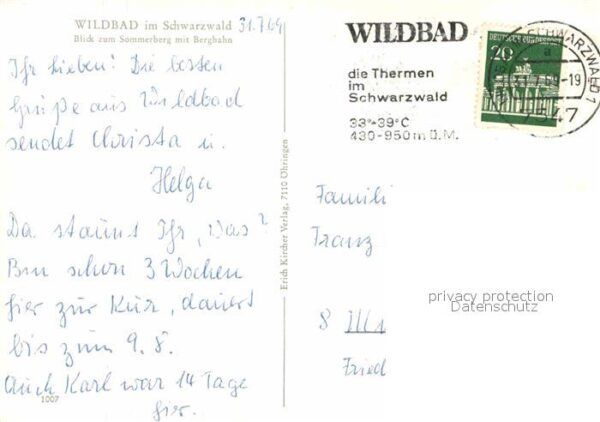 WILDBAD im Schwarzwald
Blick zum Sommerberg mit Bergbahn
31.7.69
Ihr Lieben! Die besten
Grüße aus Wildbad
sendet Christa u.
Helga
Da staunt Ihr, Was?
Bin schon 3 Wochen
hier zur Kur, dauert
bis zum 9. 8.
Auch Karl war 14 Tage
hier.
1007
Erich Kircher Verlag, 7110 Öhringen
WILDBAD
die Thermen
im
Schwarzwald
33°-39°C
430-950m ü.M.
DEUTSCHE BUNDESPOST
20
SCHWARZWALD
a
-19
7547
Famili
Franz
8
Fried
privacy protection
Datenschutz